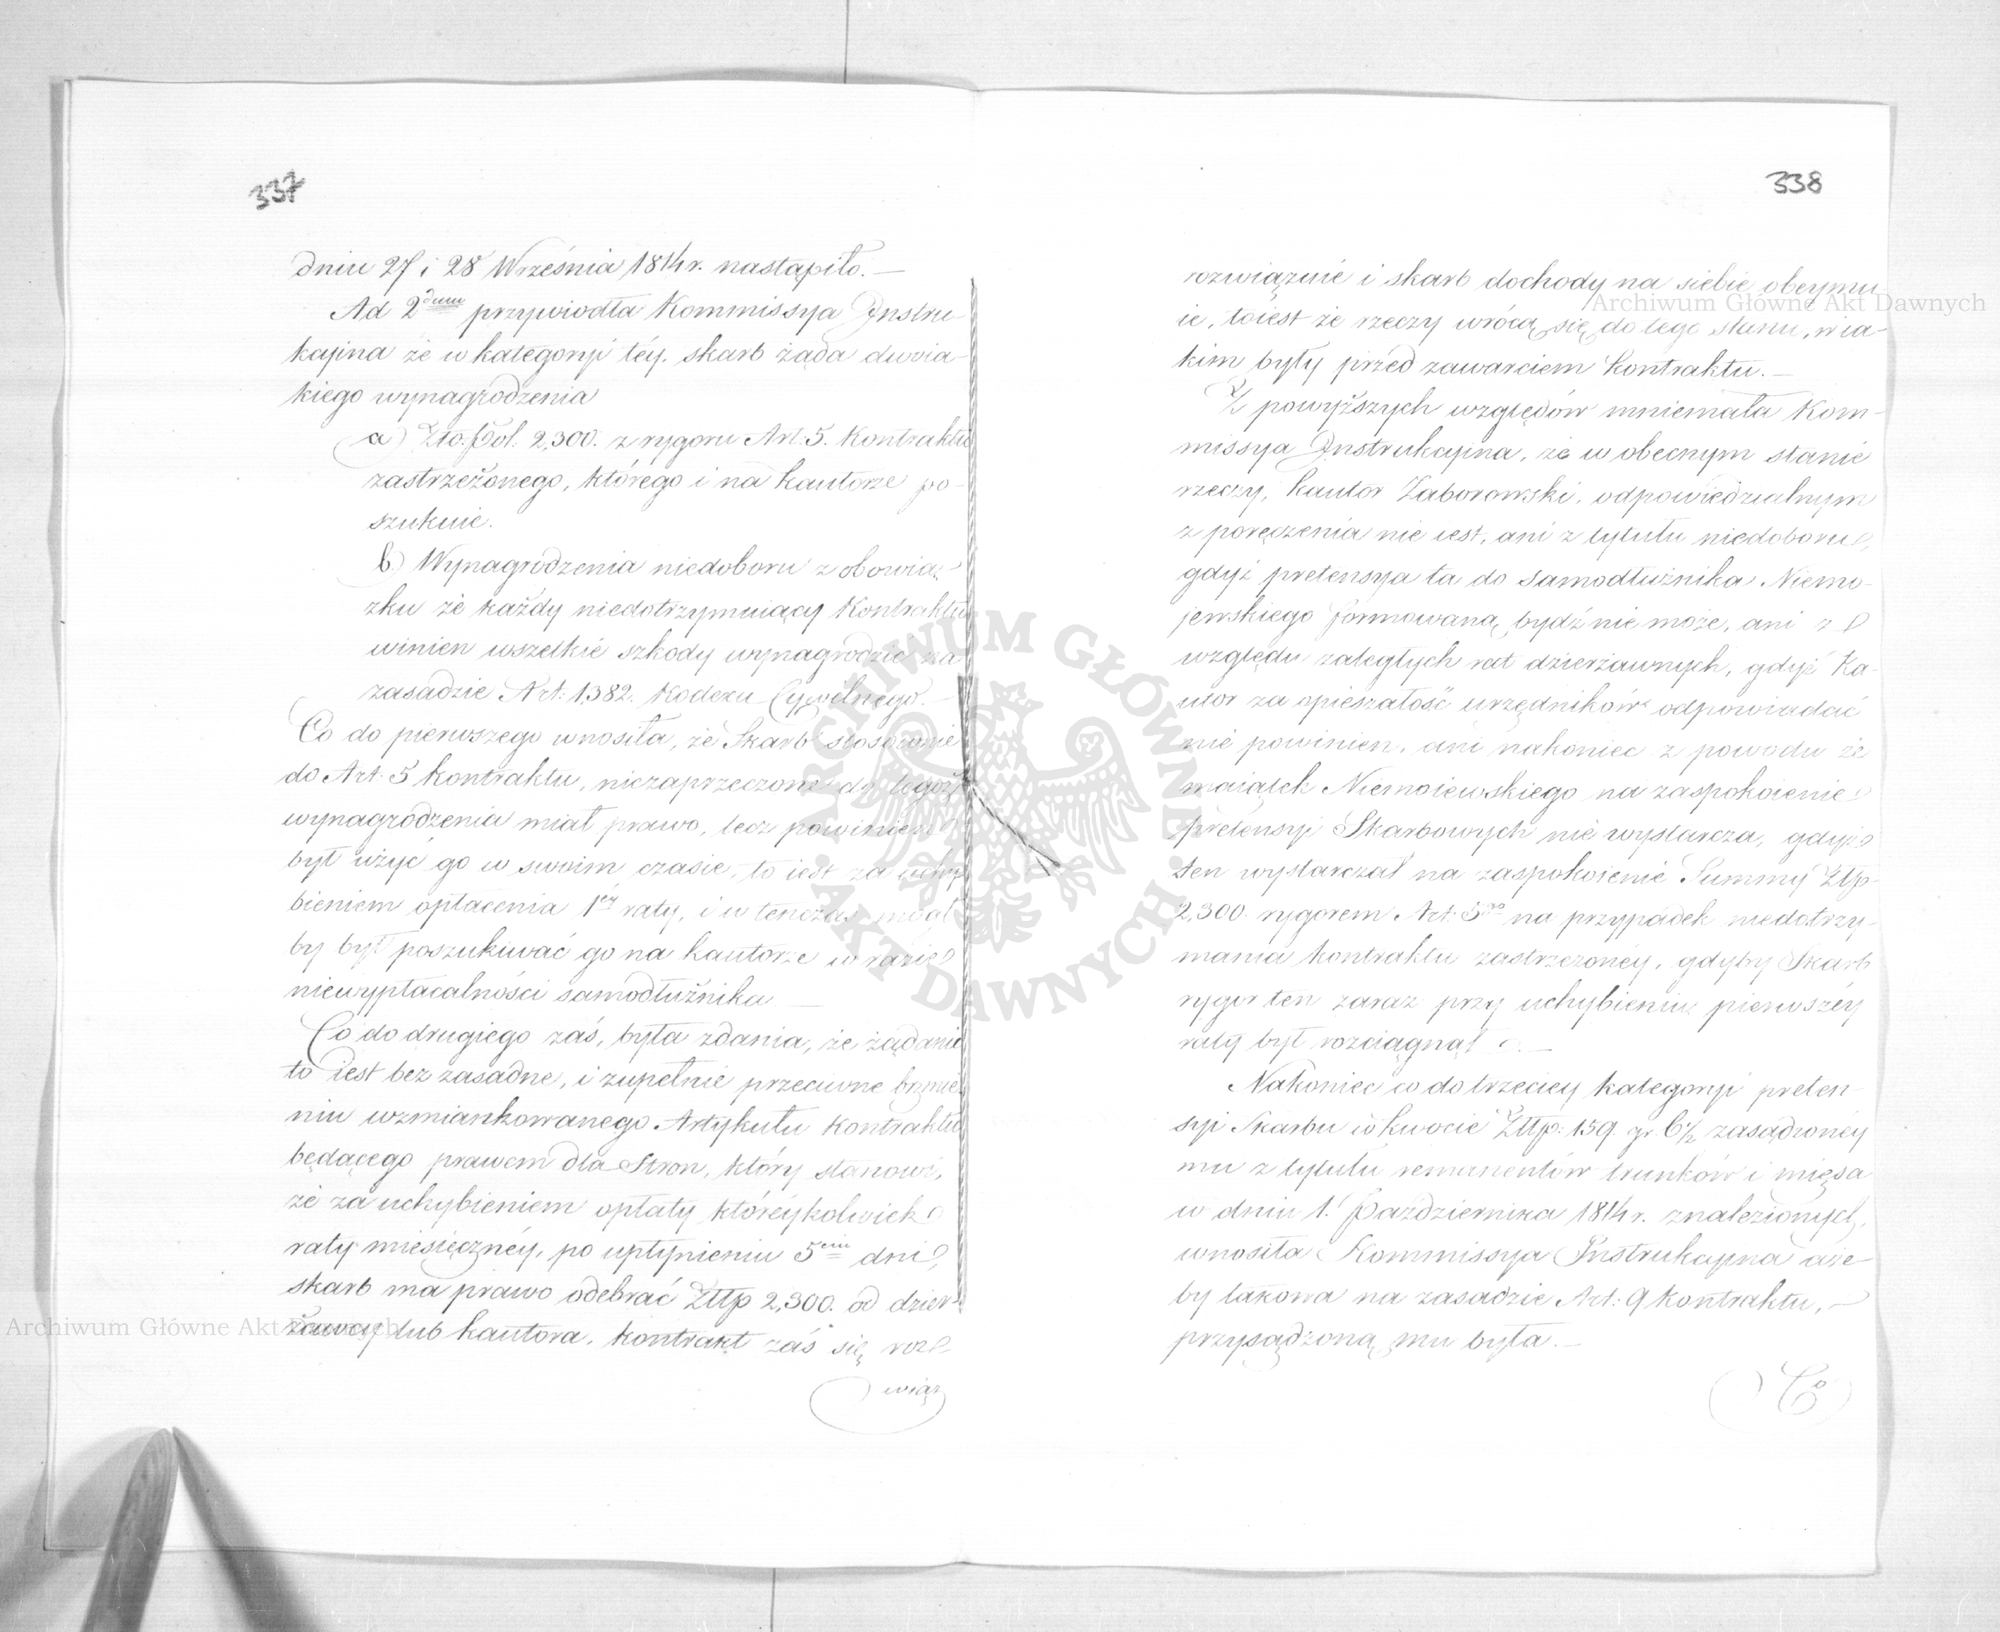 337
dniu 27 i 28 Września 1814 r. nastąpiło. —
Ad 2dum przywiodła Kommissya Instru-
kcyina że w kategoryi téy. skarb żąda dwoia-
kiego wynagrodzenia
a) Zło. Pol. 2,300. z rygoru Art. 5. Kontraktu
zastrzeżonego, którego i na kautorze po-
szukuie.
b) Wynagrodzenia niedoboru z obowią-
zku że każdy niedotrzymuiący Kontraktu
winien wszelkie szkody wynagrodzić na
zasadzie Art: 1382. Kodexu Cywilnego. —
Co do pierwszego wnosiła, że Skarb stosownie
do Art. 5 kontraktu, niezaprzeczone do tegoż
wynagrodzenia miał prawo, lecz powinien
był użyć go w swoim czasie, to iest za uchy-
bieniem opłacenia 1éy raty, i w tenczas mógł
by był poszukiwać go na kautorze w razie
niewypłacalności samodłużnika —
Co do drugiego zaś, była zdania, że żądanie
to iest bez zasadne, i zupełnie przeciwne brzmie-
niu wzmiankowanego Artykułu Kontraktu
będącego prawem dla Stron, który stanowi,
że za uchybieniem opłaty któréykolwiek
raty miesięcznéy, po upłynieniu 5ciu dni,
skarb ma prawo odebrać Złłp 2,300. od dzier-
żawcy lub kautora, kontrakt zaś się roz-
wiąz
338
rozwiązuie i skarb dochody na siebie obeymu-
ie, toiest że rzeczy wrócą się do tego stanu, w ia-
kim były przed zawarciem Kontraktu. —
Z powyższych względów mniemała Kom-
missya Instrukcyina, że w obecnym stanie
rzeczy, kautor Zaborowski, odpowiedzialnym
z poręczenia nie iest, ani z tytułu niedoboru,
gdyż pretensya ta do samodłużnika Niemo-
jewskiego formowaną bydź nie może, ani z
względu zaległych rat dzierżawnych, gdyż Ka-
utor za opieszałość urzędników odpowiadać
nie powinien, ani nakoniec z powodu że
maiątek Niemoiewskiego na zaspokoienie
pretensyi Skarbowych nie wystarcza, gdyż
ten wystarczał na zaspokoienie Summy Złłp
2,300. rygorem Art: 5go na przypadek niedotrzy-
mania kontraktu zastrzeżonéy, gdyby Skarb
rygor ten zaraz przy uchybieniu pierwszéy
raty był rozciągnął. —
Nakoniec co do trzeciey kategoryi preten-
syi Skarbu w kwocie Złłp: 159. gr. 6½ zasądzonéy
mu z tytułu remanentów trunków i mięsa
w dniu 1. Października 1814 r. znalezionych,
wnosiła Kommissya Instrukcyina aże-
by takowa na zasadzie Art: 9 Kontraktu, —
przysądzoną mu była. —
Co
Archiwum Główne Akt Dawnych
Archiwum Główne Akt Dawnych
ARCHIWUM GŁÓWNE
AKT DAWNYCH